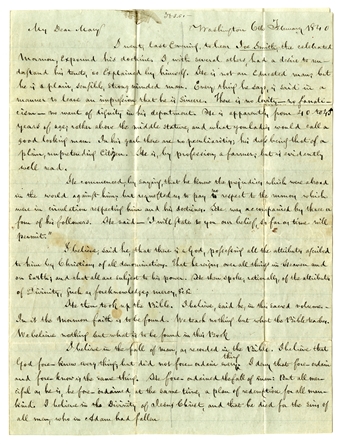 My Dear Mary Washington 6th February 1840
I went last Evening to hear Joe Smith, the celebrated
Mormon, expound his doctrine. I, with several others, had a desire to un-
derstand his tenets, as explained by himself. He is not an educated man; but
he is a plain, sensible, strong minded man. Every thing he says, is said in a
manner to leave an impression that he is sincere. There is no levity – no fanati-
cism – no want of dignity in his deportment. He is apparently from 40 to 45
years of age; rather above the middle stature, and what you ladies would call a
good looking man. In his garb there are no peculiarities; his dress being that of a
plain, unpretending Citizen. He is, by profession, a farmer; but is evidently
well read.
He commenced, by saying, that he knew the prejudices which were abroad
in the world against him; but requested us to pay no respect to the rumors which
were in circulation respecting him and his doctrines. He was accompanied by three or
four of his followers. He said – "I will state to you our belief, so far as time will
permit."
I believe, said he, that there is a God, possessing all the attributes ascribed
to him by Christians of all denominations. That he reigns over all things in Heaven and
on Earth; and that all are subject to his power. He then spoke, rationally, of the attributes
of Divinity, such as foreknowledge, mercy, &c.
He then took up the Bible. I believe, said he, in this sacred volume.
In it the Mormon faith is to be found. We teach nothing but what the Bible teaches.
We believe nothing but what is to be found in this Book.
I believe in the fall of man, as recorded in the Bible. I believe that
God foreknew every thing, but did not fore-ordain every thing. I deny that fore-ordain
and foreknow is the same thing. He fore-ordained the fall of man: But all mer-
ciful as he is, he fore-ordained at the same time, a plan of redemption for all man-
kind. I believe in the Divinity of Jesus Christ, and that he died for the sins of
all men, who in Adam had fallen.